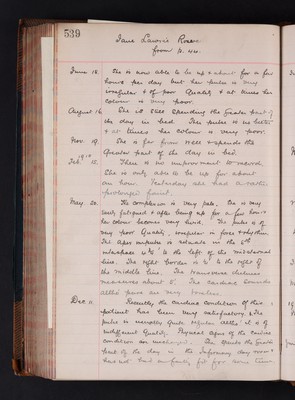 539
Jane Lawrie Rose
from p. 44.
June 18 She is now able to be up & about for a few
hours per day but her pulse is very
irregular & of poor Quality & at times her
colour is very poor.
August 16 She is still spending the Greater part of
the day in bed. Her pulse is no better
& at times her colour is very poor.
Nov. 19. She is far from well & spends the
Greater part of the day in bed.
Feb 15. There is no improvement to record.
She is only able to be up for about
an hour. Yesterday she had a rather
prolonged faint.
May. 20. The complexion is very pale. She is very
easily fatigued & after being up for a few hours
her colour becomes very livid. The pulse is of
very poor Quality, irregular in force & rhythm.
The apex impulse is palpable in the 5th
interspace to the left of the midsternal
line. The right border is to the right of
the middle line. The transverse dulness
measures about 8". The cardiac sounds
are very
Dec 11. Recently the cardiac condition of this
patient has been very satisfactory. The
pulse is usually quite regular altho' it is of
indifferent Quality. Physical signs of the cardiac
condition are unchanged. She spends the Greater
part of the day in the Infirmary day room &
has not had any faint, fit for some time